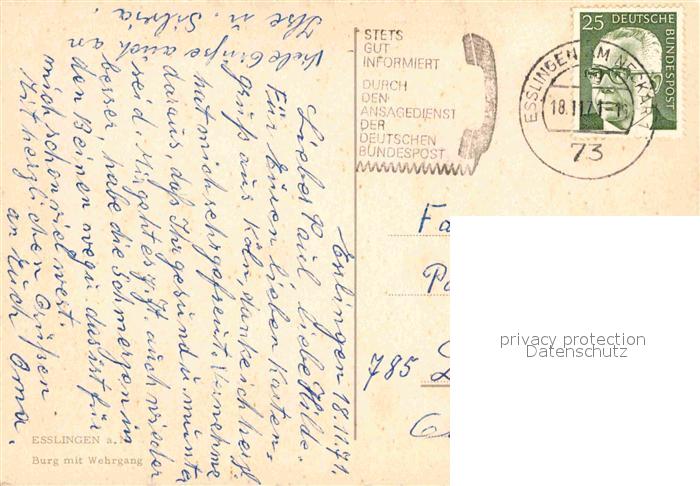 Esslingen 18.11.71.
Lieber Paul liebe Hilde.
Für Euren lieben Karten-
gruß aus Köln, danke ich herzl.
hat mich sehr gefreut. Vernehme
daraus, daß Ihr gesund u. munter
seid. Mir geht es jetzt auch wieder
besser, habe die Schmerzen in
den Beinen weg u. das ist für
mich schon viel wert.
Mit herzlichen Grüßen
an Euch Oma.
Viele Grüße auch
Ilse u. Silvia.
STETS
GUT
INFORMIERT
DURCH
DEN
ANSAGEDIENST
DER
DEUTSCHEN
BUNDESPOST
ESSLINGEN AM NECKAR
18.11.71
73
25 DEUTSCHE
BUNDESPOST
Fa
785
privacy protection
Datenschutz
ESSLINGEN a.
Burg mit Wehrgang